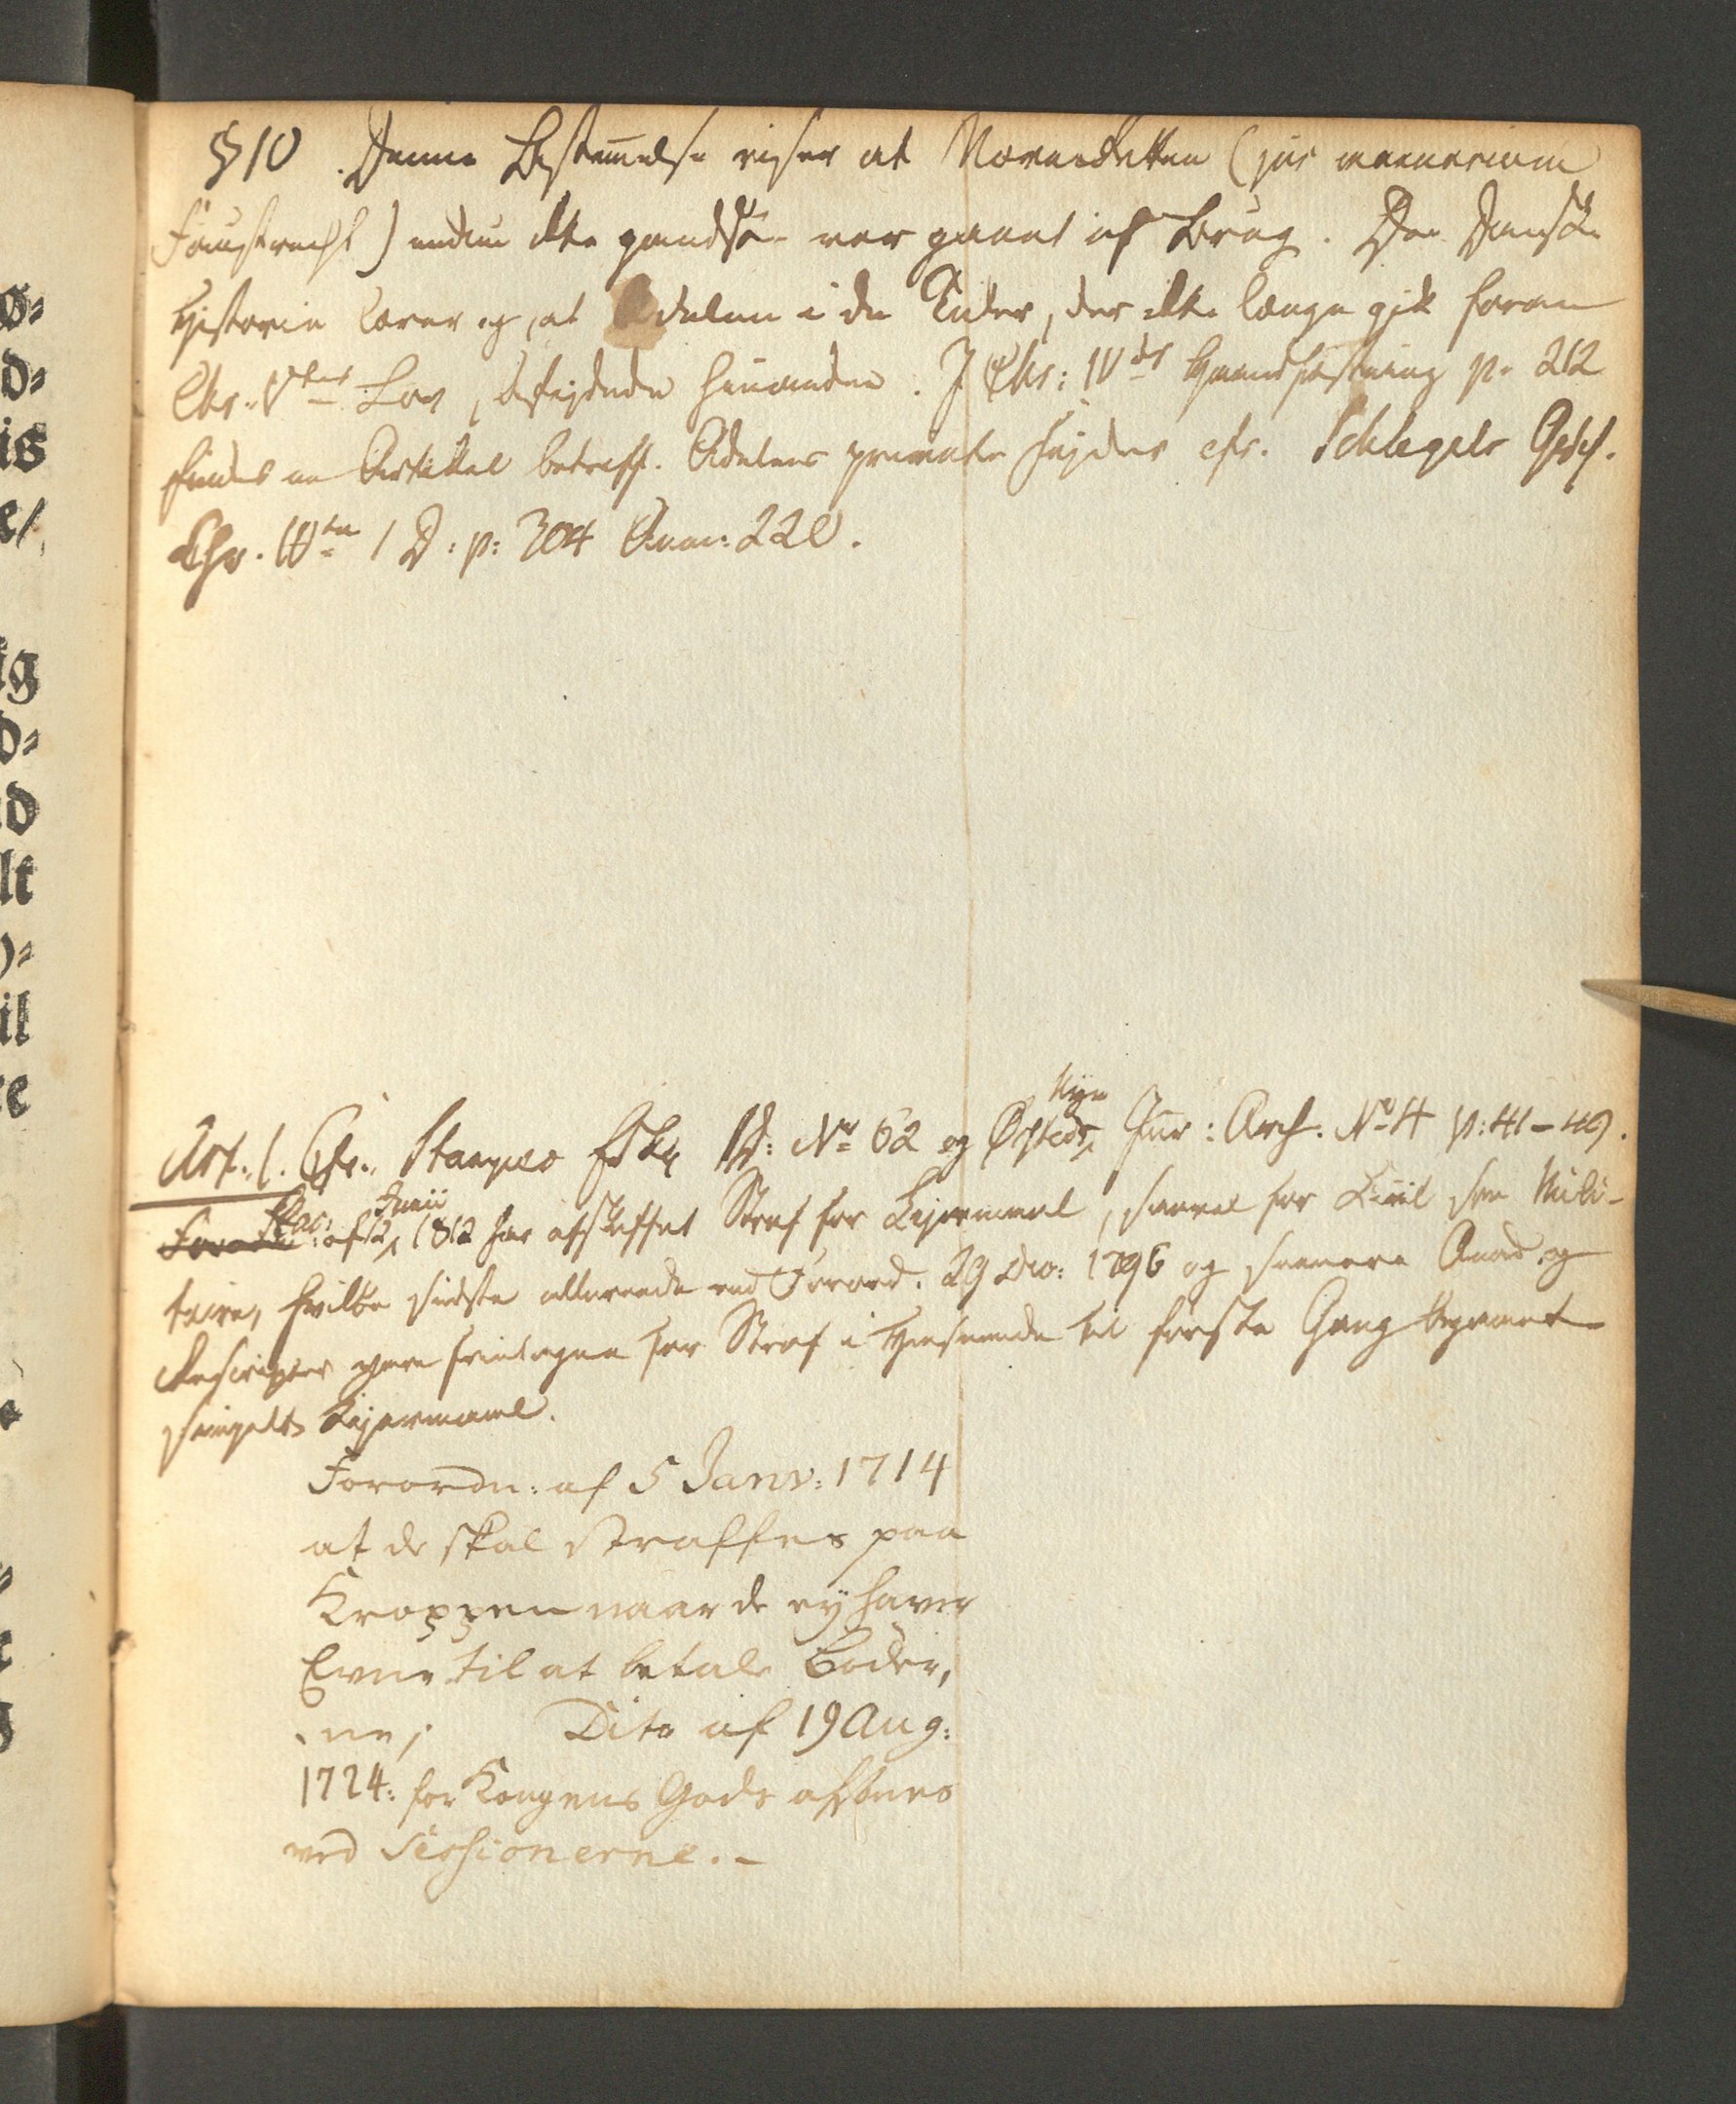 § 10. Denne Bestemelse viser at Næveretten (jus manuarium
Faustrecht) endnu ikke gandske var gaaet af Brug. Den Danske
Historie lærer og, at Adelen i de Tider, der ikke længe gik foran
Chr. Vtes Lov, befejdede hinanden. I Chr: IVdes Haandfæstning p. 212
findes en Artikel betreff. Adelens private Fejder cfr. Schlegels Gesch.
Chr. IVten 1 D: p: 304 Anm: 220.
Art. 1. Cfr. Stampes Erkl. 1 D: No 62 og Ørsteds Nye Jur: Arch. No 4 p: 41-49.
Plac: af 12 Junii 1812 har afskaffet Straf for Lejermaal, saavel for Civil som Mili-
taire, hvilke sidste allerede ved Forord. 29 Dec: 1796 og senere Anord. og
Rescripter vare fritagne for Straf i Henseende til første Gang begaaet
simpelt Lejermaal.
Forordn: af 5 Janv: 1714
at de skal straffes paa
Kroppen naar de ey haver
Evne til at betale Bøder,
ne; Dito af 19 Aug:
1724: for Kongens Gods afsones
ved Sessionerne. -
ø=
d=
is
e/
ig
d=
d
lt
)=
il
re